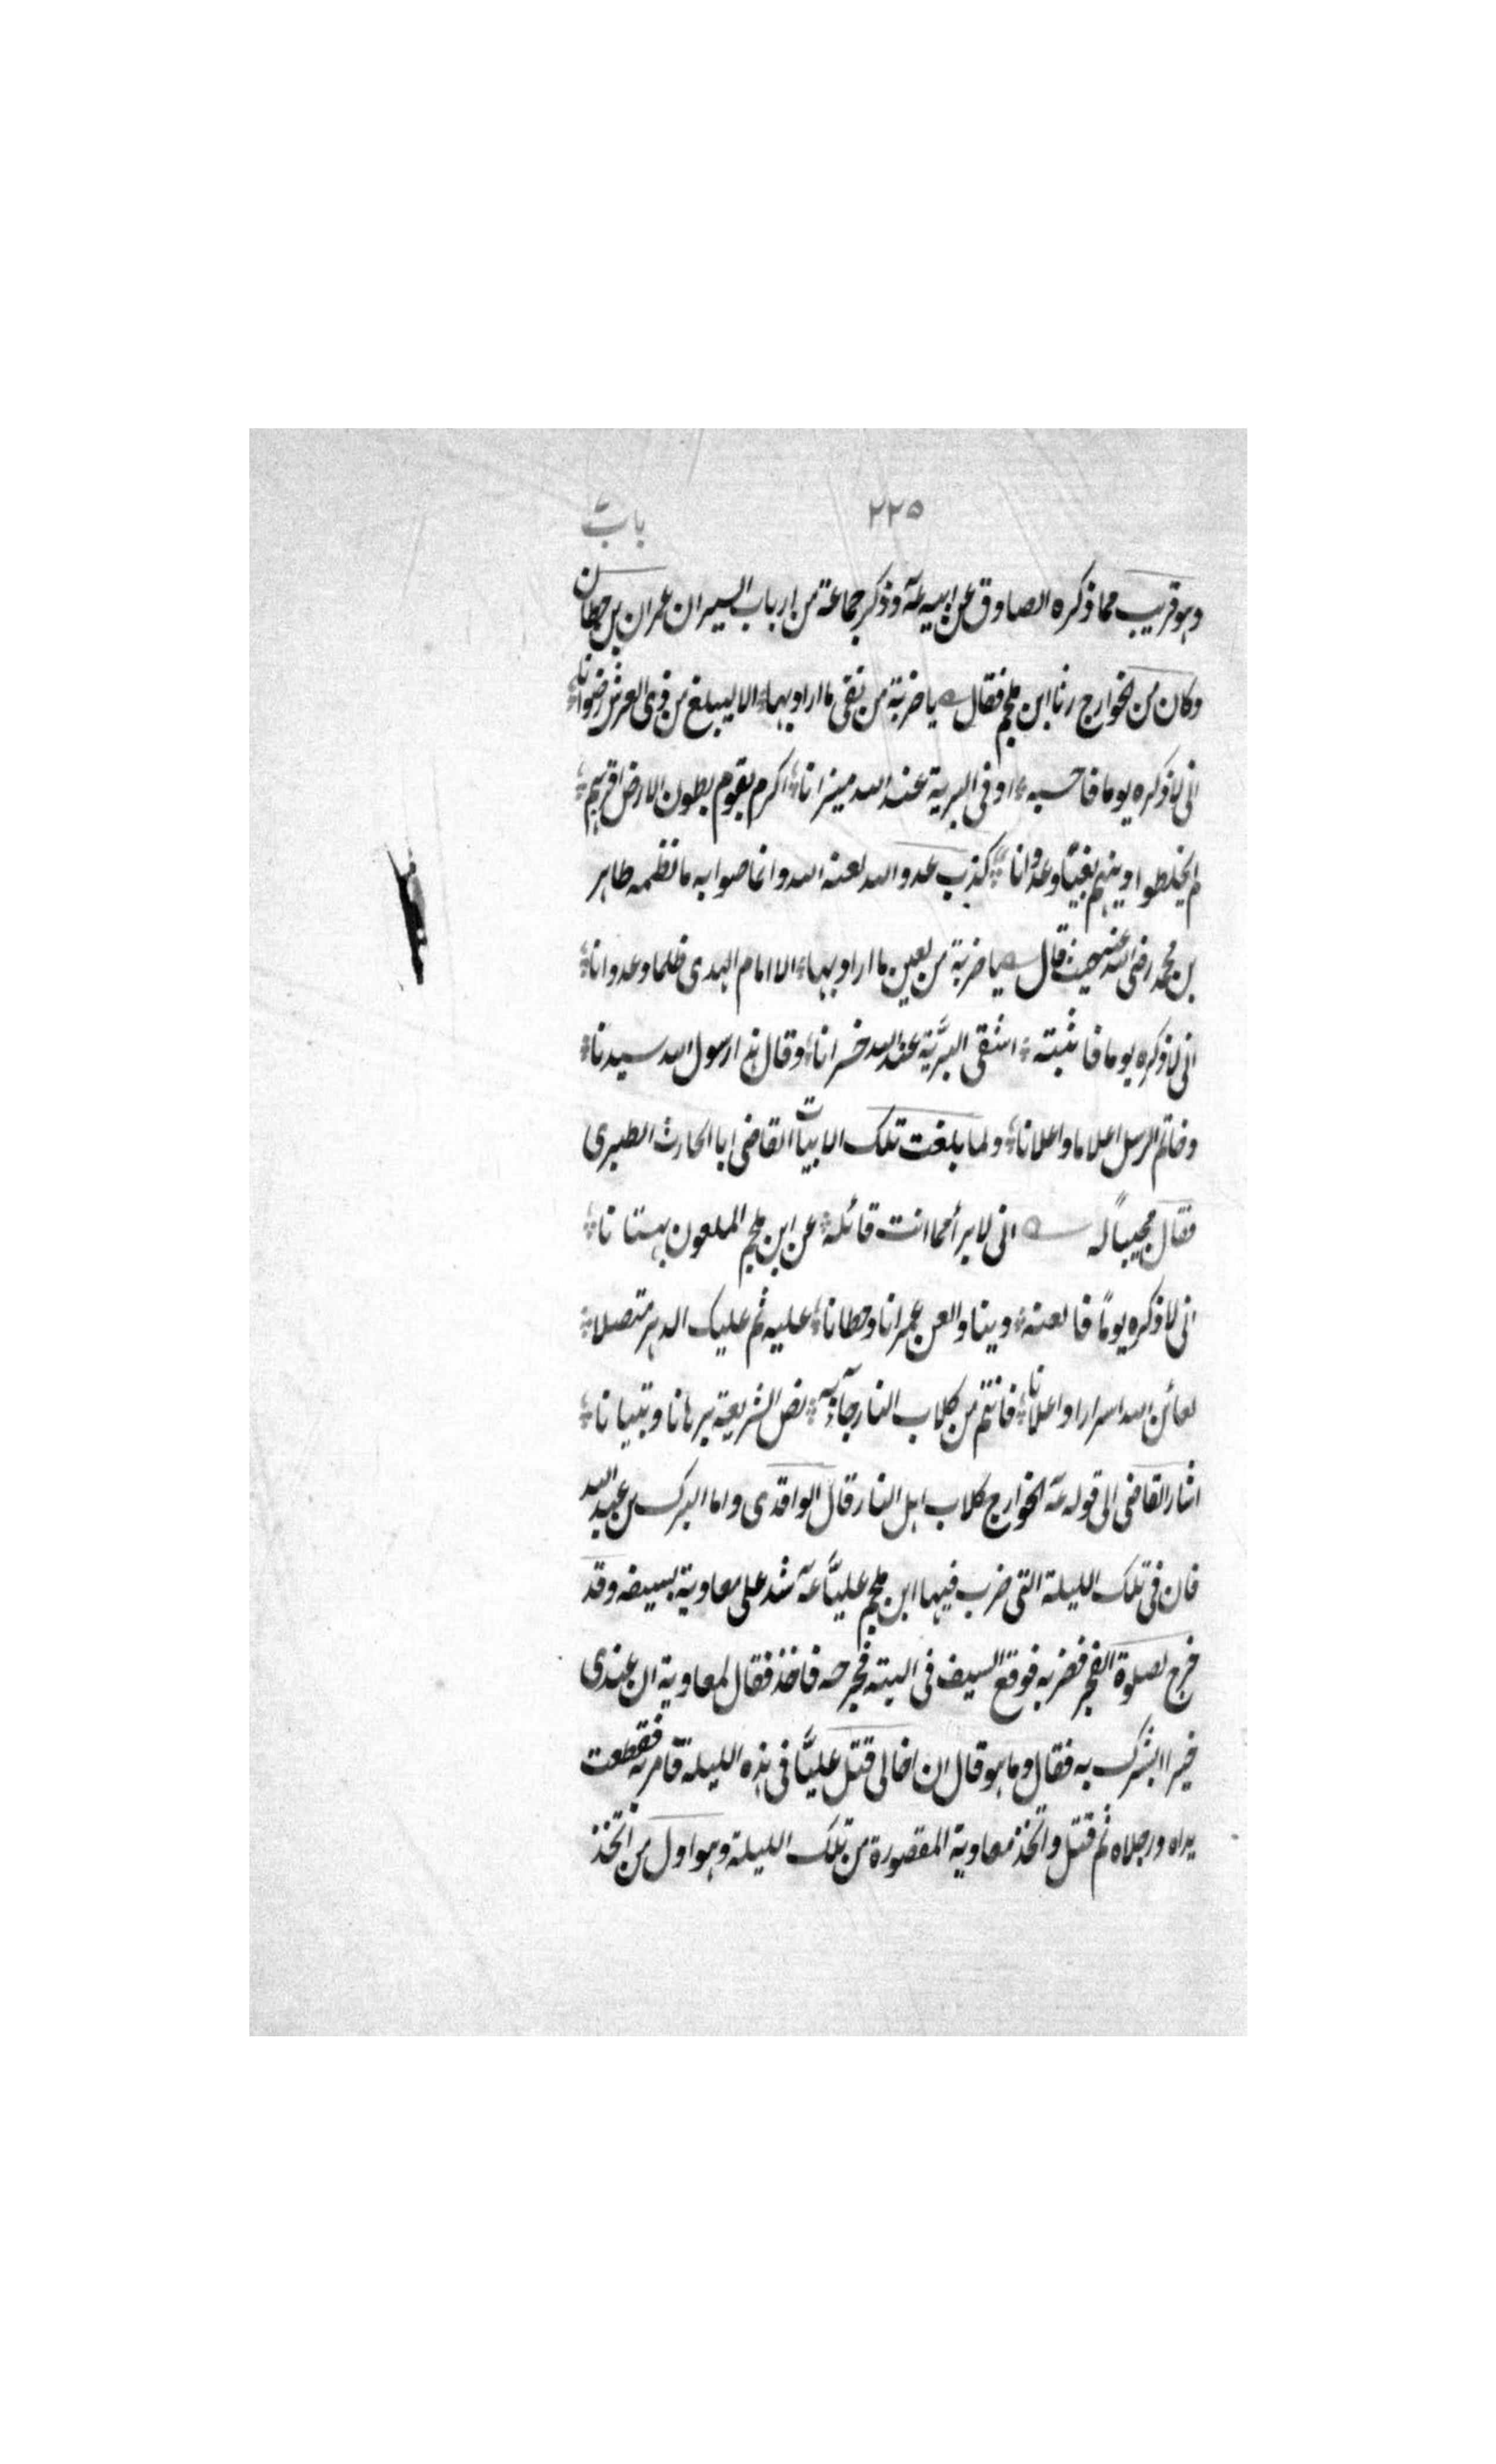 ٢٢٥ باب
وهو قريب مما ذكره الصادق عن ابيه عۤه وذكر جماعة من ارباب السير ان عمران بن حطان
وكان من الخوارج رثا ابن ملجم فقال يا ضربة من تقى ما اراد بها الا ليبلغ من ذى العرش رضوانا
انى لاذكره يوما فاحسبه اوفى البرية عند الله ميزانا اكرم بقوم بطون الارض اقبرهم
لم يخلطوا دينهم بغيًا وعدوانا كذب عدو الله لعنه الله وانما صوابه ما نظمه طاهر
بن محمد رضى الله عنه حيث قال يا ضربة من لعين ما اراد بها الا امام الهدى ظلما وعدوانا
انى لاذكره يوما فاثبته اشقى البريّة عند الله خسرانا وقال هذا رسول الله سيدنا
وخاتم الرسل اعلاما واعلانا ولما بلغت تلك الابيات القاضى ابا الحارث الطبرى
فقال مجيبًا له انى لابرأ مما انت قائله عن ابن ملجم الملعون بهتانا
انى لاذكره يومًا فالعنه دينا والعن عمرانا وحطانا عليه ثم عليك الدهر متصلا
لعائن الله اسرارا واعلانا فانتم من كلاب النار جاء به نص الشريعة برهانا وتبيانا
اشار القاضى الى قوله عۤه الخوارج كلاب اهل النار قال الواقدى واما البرك بن عبد الله
فان فى تلك الليلة التى ضرب فيها ابن ملجم عليًّا عۤه شد على معاوية بسيفه وقد
خرج لصلوة الفجر فضربه فوقع السيف فى اليته فجرحه فاخذ فقال لمعاوية ان عندى
خيرا ابشرك به فقال وما هو قال ان اخا لى قتل عليًّا فى هذه الليلة فامر به فقطعت
يداه ورجلاه ثم قتل واتخذ معاوية المقصورة من تلك الليلة وهو اول من اتخذ